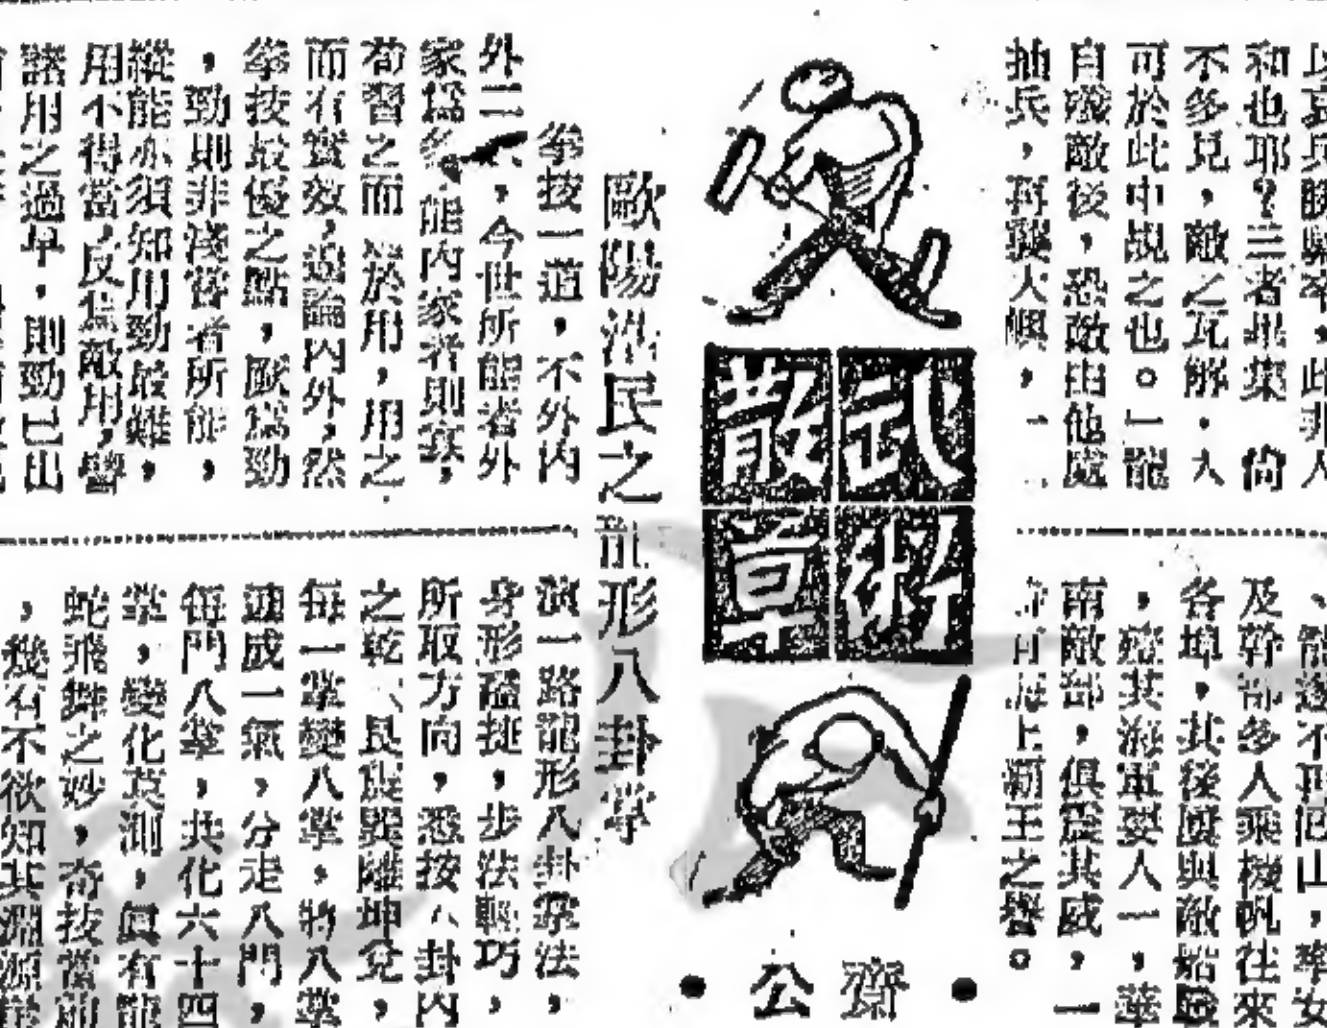 以哀兵勝驕卒，此非人
和也耶？三者畢集 尚
不多見，敵之瓦解．大
可於此中覘之也。」龍
自殲敵後，恐敵由他處
抽兵，再襲大嶼，一
、龍遂不再回山，率女
及幹部多人乘機帆往來
各埠，其後屢與敵船
，殲其海軍要人一，華
南敵部，俱震其威，一
海上霸王之譽。
武術
散草
齋公
歐陽浩民之龍形八卦掌
拳技一道，不外內
外二，今世所能者外
家爲多，能內家者則寡，
苟習之而 於用，用之
而有實效，遑論內外，然
拳技最優之點，厥爲勁
，勁則非淺嘗者所能，
縱能亦須知用勁最難，
用不得當，反爲敵用，譬
諸用之過早，則勁已出
演一路龍形八卦掌法，
身形捷，步法輕巧，
所取方向，悉按八卦內
之乾、艮震巽離坤兌，
每一掌變八掌，將八掌
連成一氣，分走八門，
每門八掌，共化六十四
掌，變化莫測，眞有龍
蛇飛舞之妙，奇技當前
，幾有不欲知其淵源